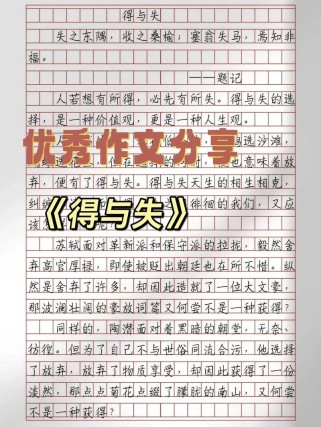 得与失
失之东隅，收之桑榆；塞翁失马，焉知非
福。
——题记
人若想有所得，必先有所失。得与失的选
择，是一种价值观，更是一种人生观。
选沙滩，
优秀作文分享
也意味着放
弃，便有了得与失。得与失天生的相生相克，
纠缠
徘徊的我们，又应
《得与失》
该
苏轼面对革新派和保守派的拉拢，毅然舍
弃高官厚禄，即使被贬出朝廷也在所不惜。纵
然是舍弃了许多，却因此造就了一位大文豪，
那波澜壮阔的豪放词篇又何尝不是一种获得？
同样的，陶潜面对着黑暗的朝堂，无奈、
彷徨。但为了自己不与世俗同流合污，他选择
了放弃，放弃了物质享受，却因此获得了一份
淡然，那点点菊花点缀了朦胧的南山，又何尝
不是一种获得？